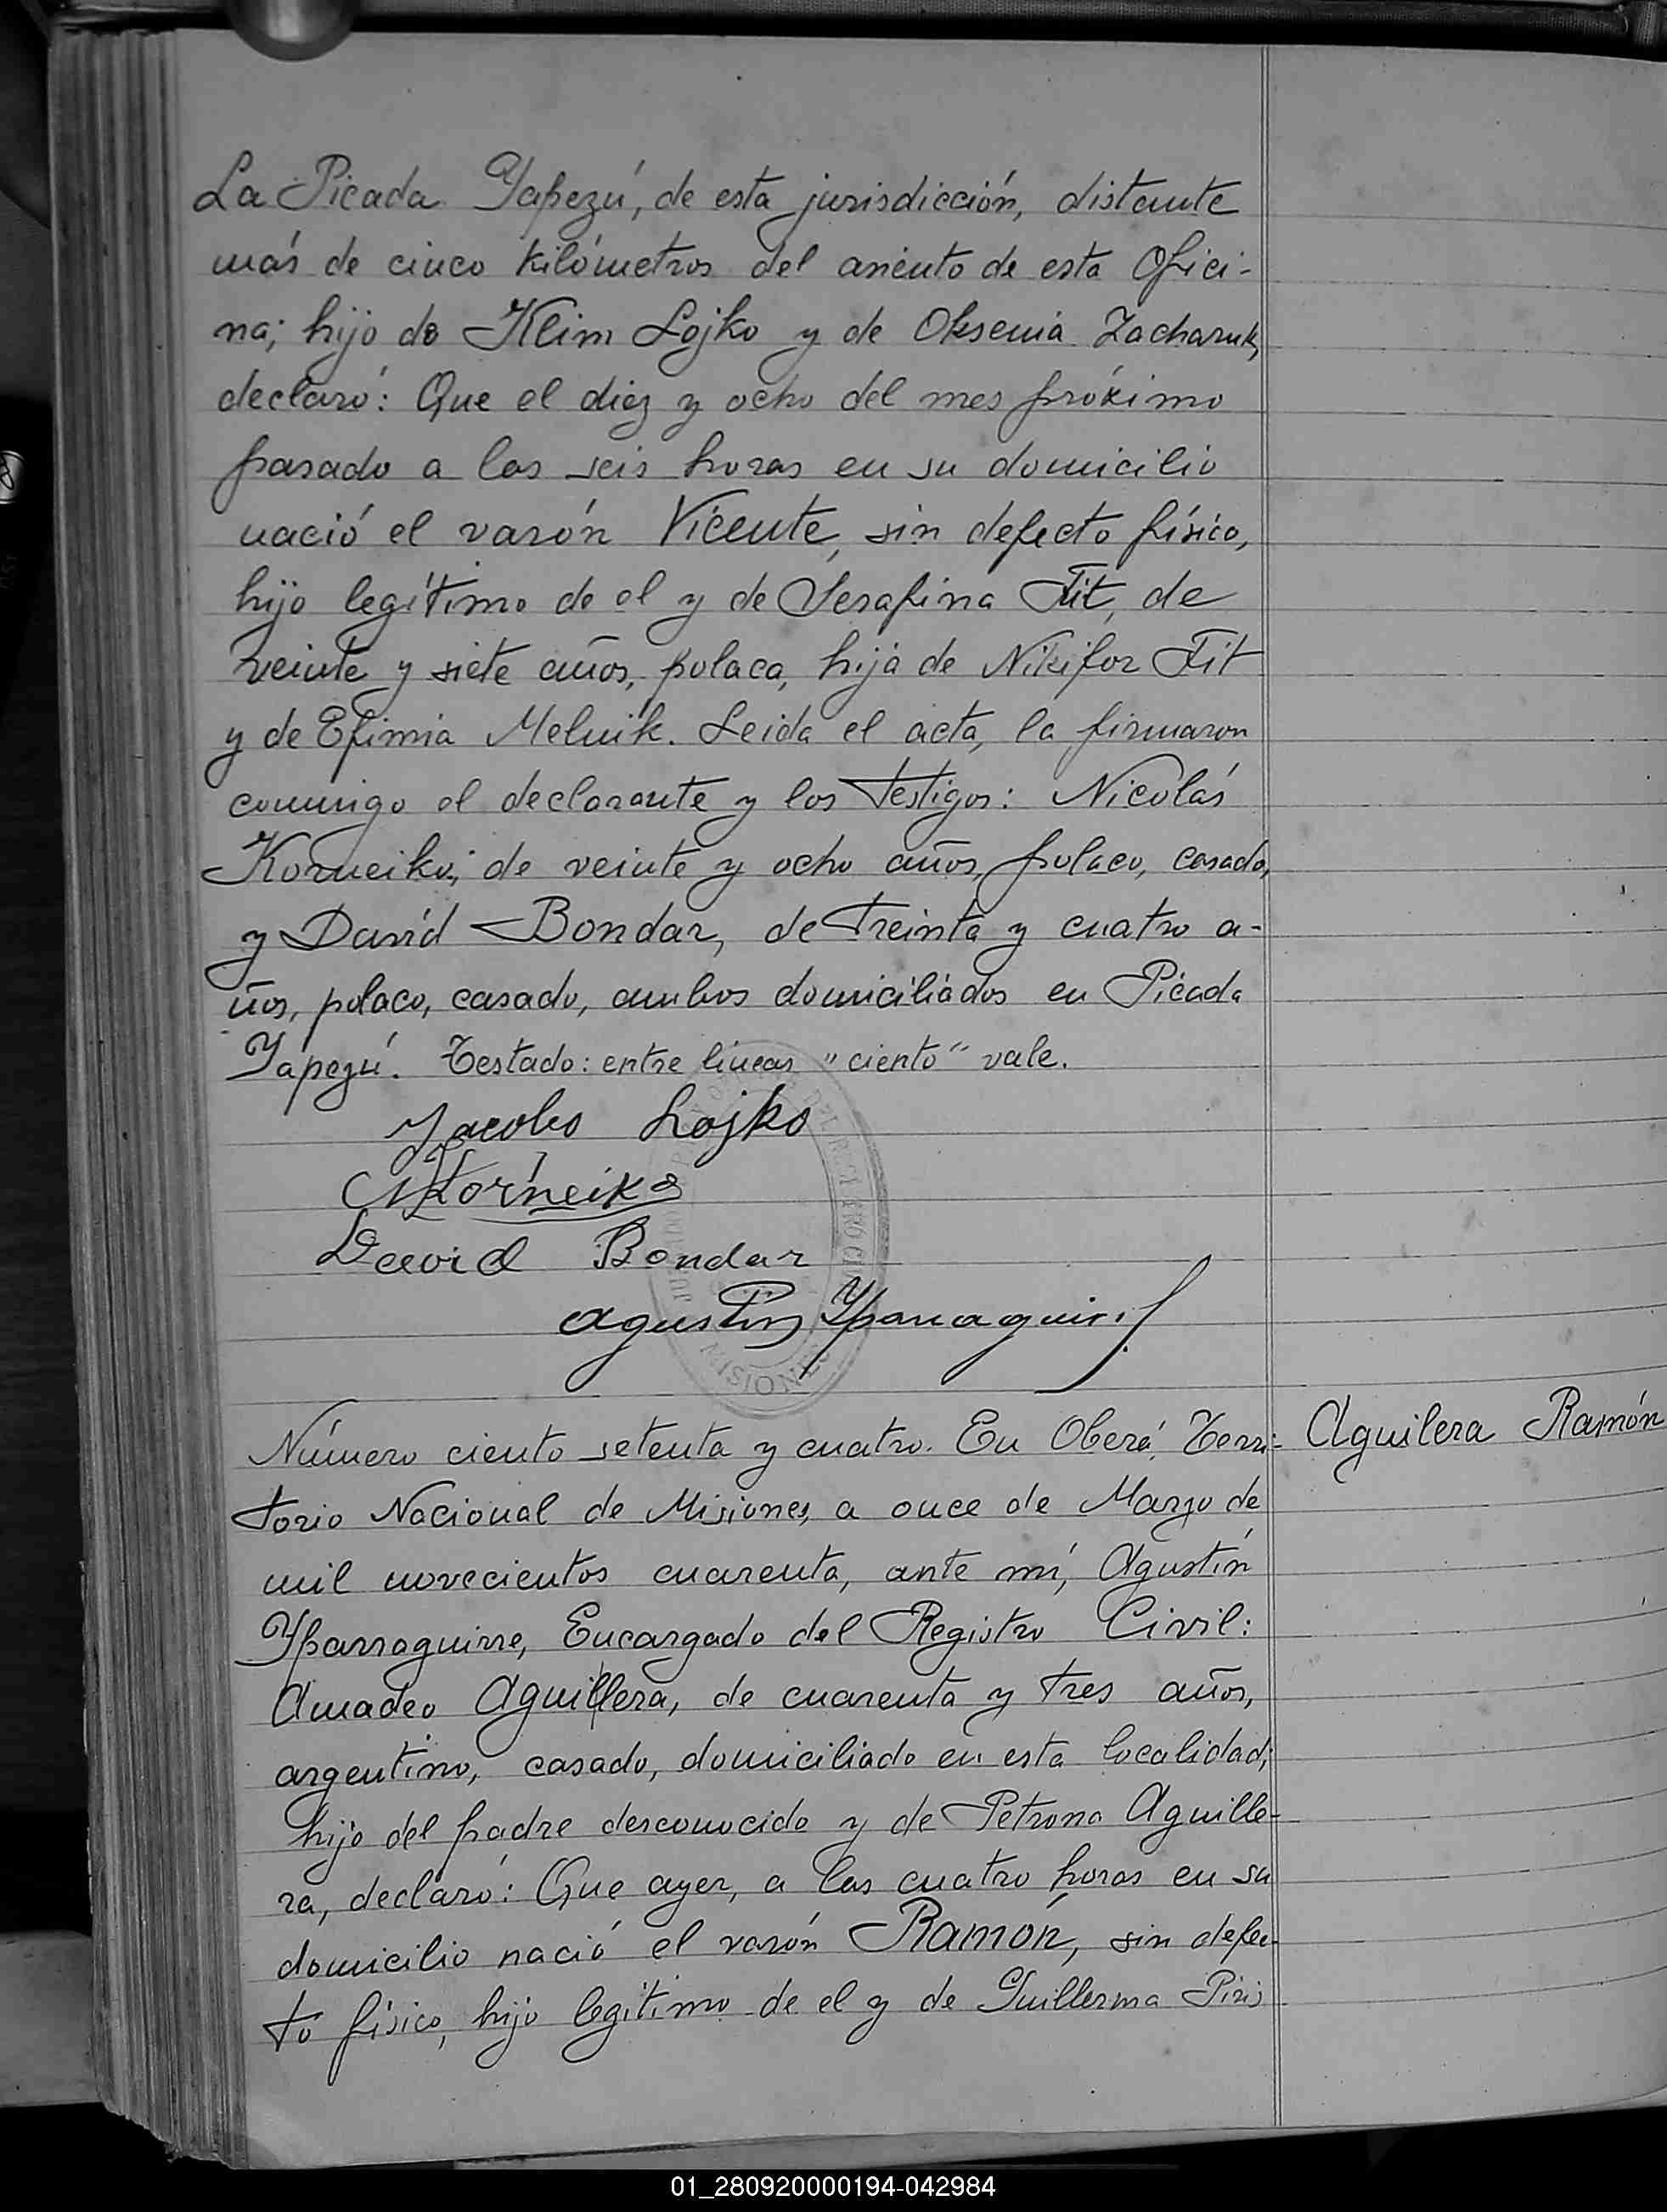 La Picada Yapezú, de esta jurisdicción, distante
más de cinco kilómetros del asiento de esta Ofici-
na; hijo de Klim Lojko y de Oksenia Zacharuk,
declaró: Que el diez y ocho del mes próximo
pasado a las seis horas en su domicilio
nació el varón Vicente, sin defecto físico,
hijo legítimo de el y de Serafina Tit, de
veinte y siete años, polaca, hija de Nikifor Tit
y de Efimia Melnik. Leida el acta, la firmaron
conmigo el declarante y los testigos: Nicolás
Korneiko; de veinte y ocho años, polaco, casado,
y David Bondar, de treinta y cuatro a-
ños, polaco, casado, ambos domiciliados en Picada
Yapezú. Testado: entre líneas "ciento" vale.
Jacobo Lojko
NKorneiko
David Bondar
Agustin Yparraguirre
MISIONES
Número ciento setenta y cuatro. En Oberá, Terri-
Aguilera Ramón
torio Nacional de Misiones, a once de Marzo de
mil novecientos cuarenta, ante mí, Agustín
Yparraguirre, Encargado del Registro Civil:
Amadeo Aguillera, de cuarenta y tres años,
argentino, casado, domiciliado en esta localidad;
hijo del padre desconocido y de Petrona Aguille-
ra, declaró: Que ayer, a las cuatro horas en su
domicilio nació el varón Ramón, sin defec-
to físico, hijo legitimo de el y de Guillerma Piris
01_280920000194-042984